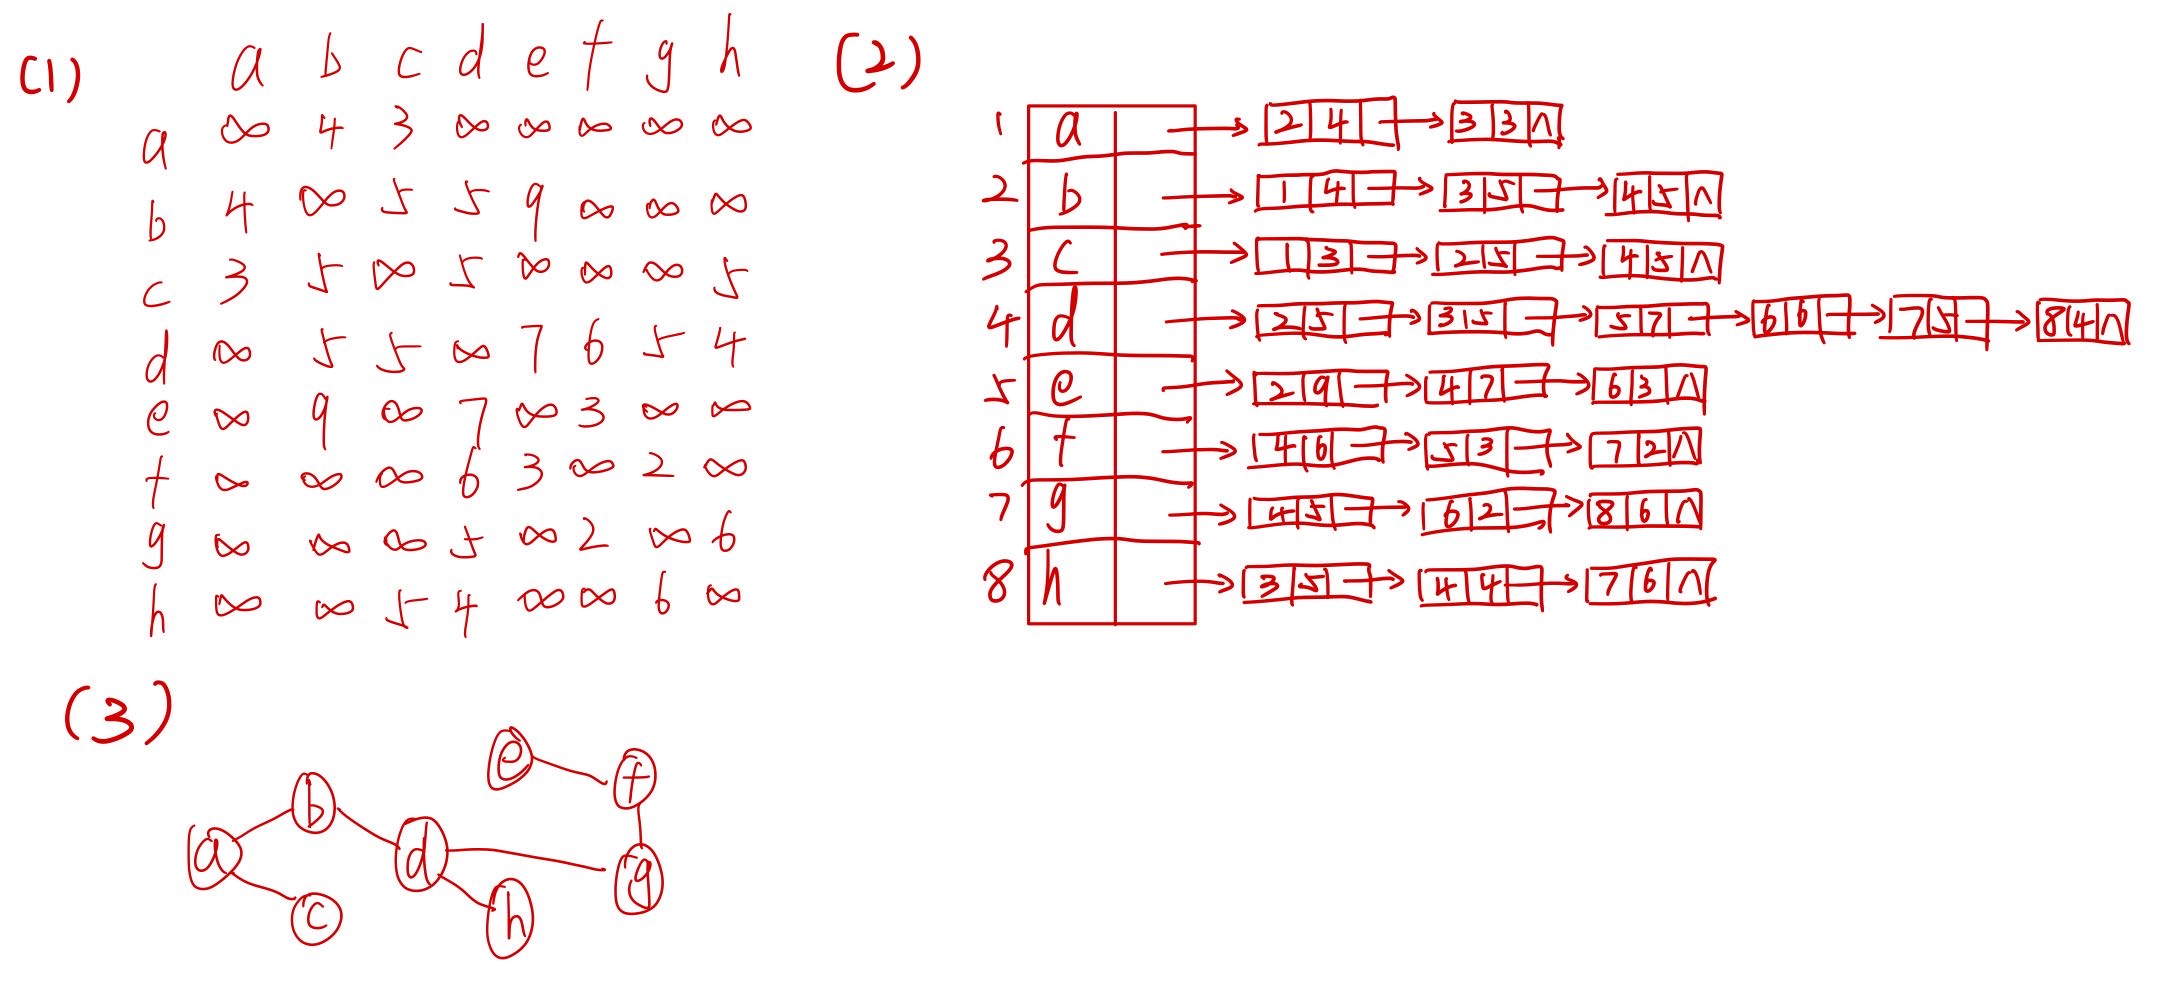 (1)
a b c d e f g h
a ∞ 4 3 ∞ ∞ ∞ ∞ ∞
b 4 ∞ 5 5 9 ∞ ∞ ∞
c 3 5 ∞ 5 ∞ ∞ ∞ 5
d ∞ 5 5 ∞ 7 6 5 4
e ∞ 9 ∞ 7 ∞ 3 ∞ ∞
f ∞ ∞ ∞ 6 3 ∞ 2 ∞
g ∞ ∞ ∞ 5 ∞ 2 ∞ 6
h ∞ ∞ 5 4 ∞ ∞ 6 ∞
(2)
1 a 2 4 3 3 ∧
2 b 1 4 3 5 4 5 ∧
3 c 1 3 2 5 4 5 ∧
4 d 2 5 3 5 5 7 6 6 7 5 8 4 ∧
5 e 2 9 4 7 6 3 ∧
6 f 4 6 5 3 7 2 ∧
7 g 4 5 6 2 8 6 ∧
8 h 3 5 4 4 7 6 ∧
(3)
e f
b
a d g
c h